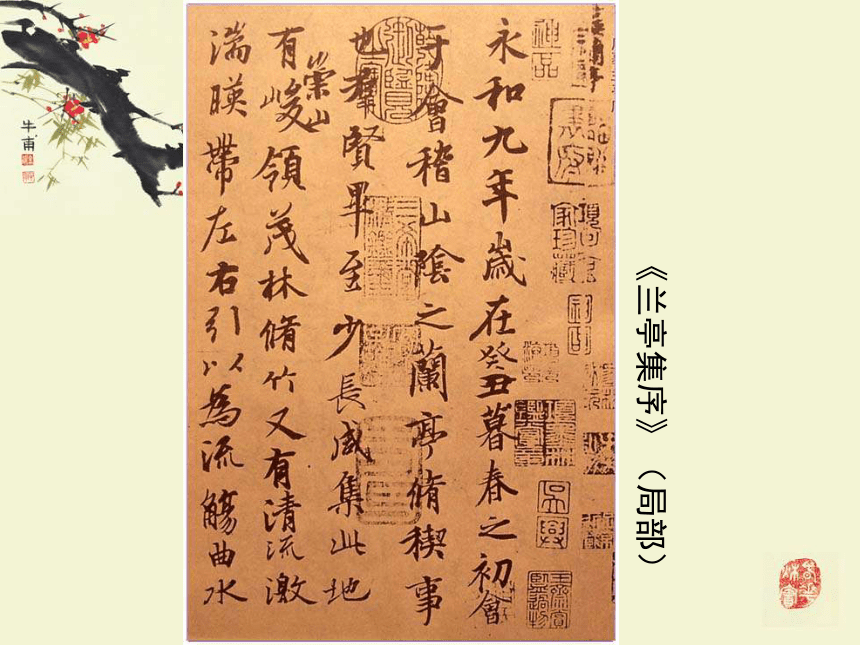 永和九年歲在癸丑暮春之初會
于會稽山陰之蘭亭脩稧事
也羣賢畢至少長咸集此地
有崇山峻領茂林脩竹又有清流激
湍暎帶左右引以為流觴曲水
《兰亭集序》（局部）
牛甫